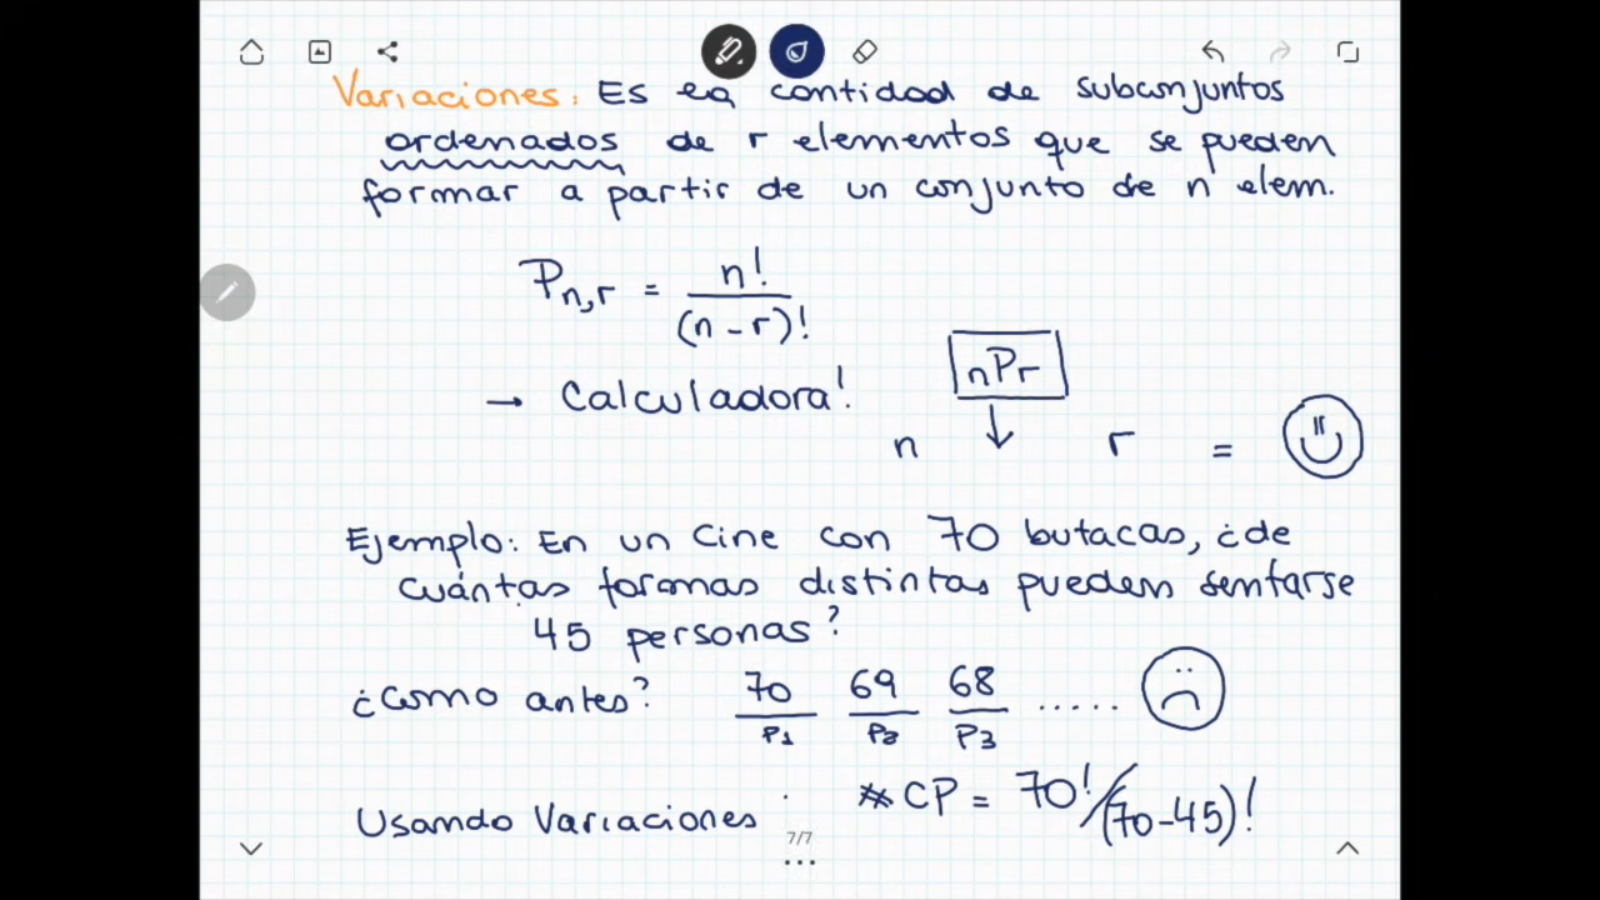 Variaciones: Es la cantidad de subconjuntos
ordenados de r elementos que se pueden
formar a partir de un conjunto de n elem.
P n,r = n! / (n - r)!
→ Calculadora! nPr
n ↓ r =
Ejemplo: En un cine con 70 butacas, ¿de
cuántas formas distintas pueden sentarse
45 personas?
¿Como antes? 70 69 68 .....
P1 P2 P3
Usando Variaciones #CP = 70!/(70-45)!
7/7